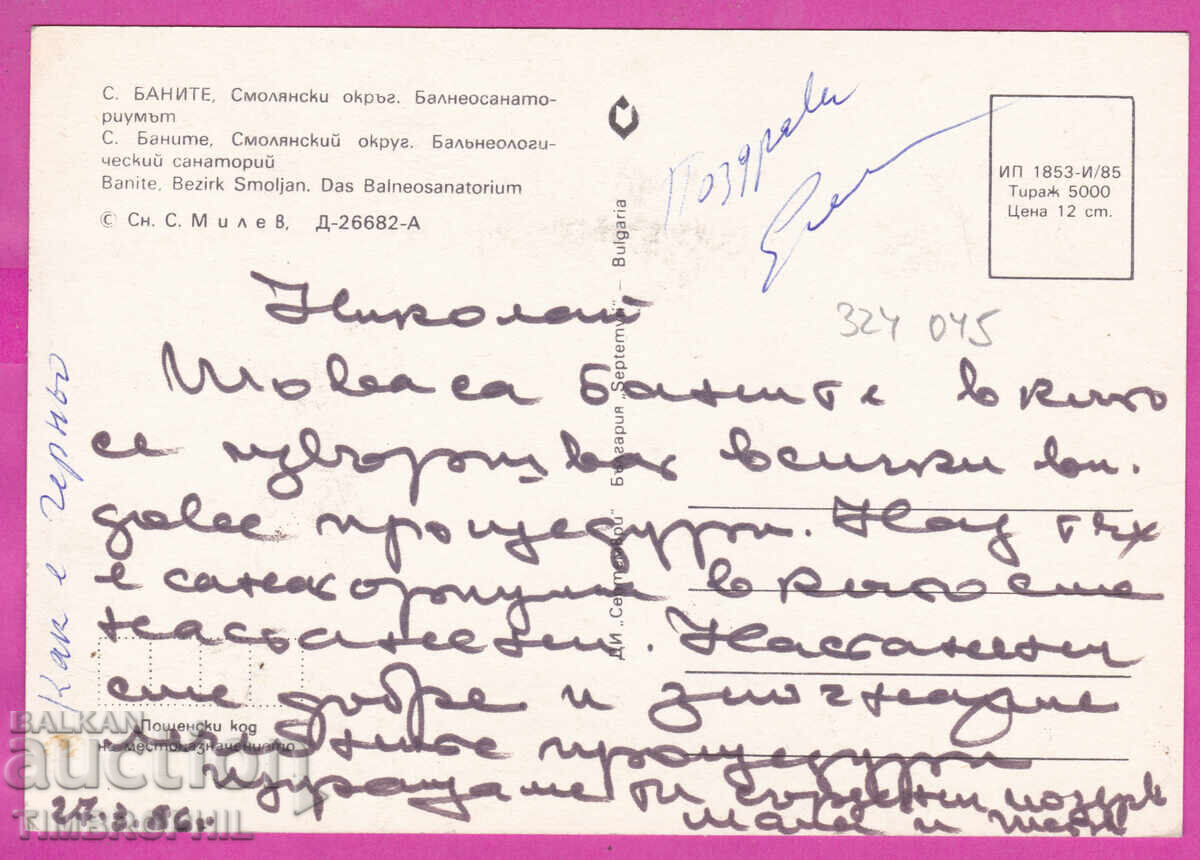 С. БАНИТЕ, Смолянски окръг. Балнеосанато-
риумът
С. Баните, Смолянский округ. Бальнеологи-
ческий санаторий
Banite, Bezirk Smoljan. Das Balneosanatorium
© Сн. С. Милев, Д-26682-А
ДИ „Септември" България „Septemvri" – Bulgaria
ИП 1853-И/85
Тираж 5000
Цена 12 ст.
Поздрави
324 045
Николай
Това са Баните в които
се извършват всички ви-
дове процедури. Над тях
е санаториума в който сме
настанени. Настанени
сме добре и започнахме
процедури
изпращаме ти сърдечни поздрави
мама и
27.3.86 г
Как е
Пощенски код
на местоназначението
BALKAN
auction
TIMBROPHIL